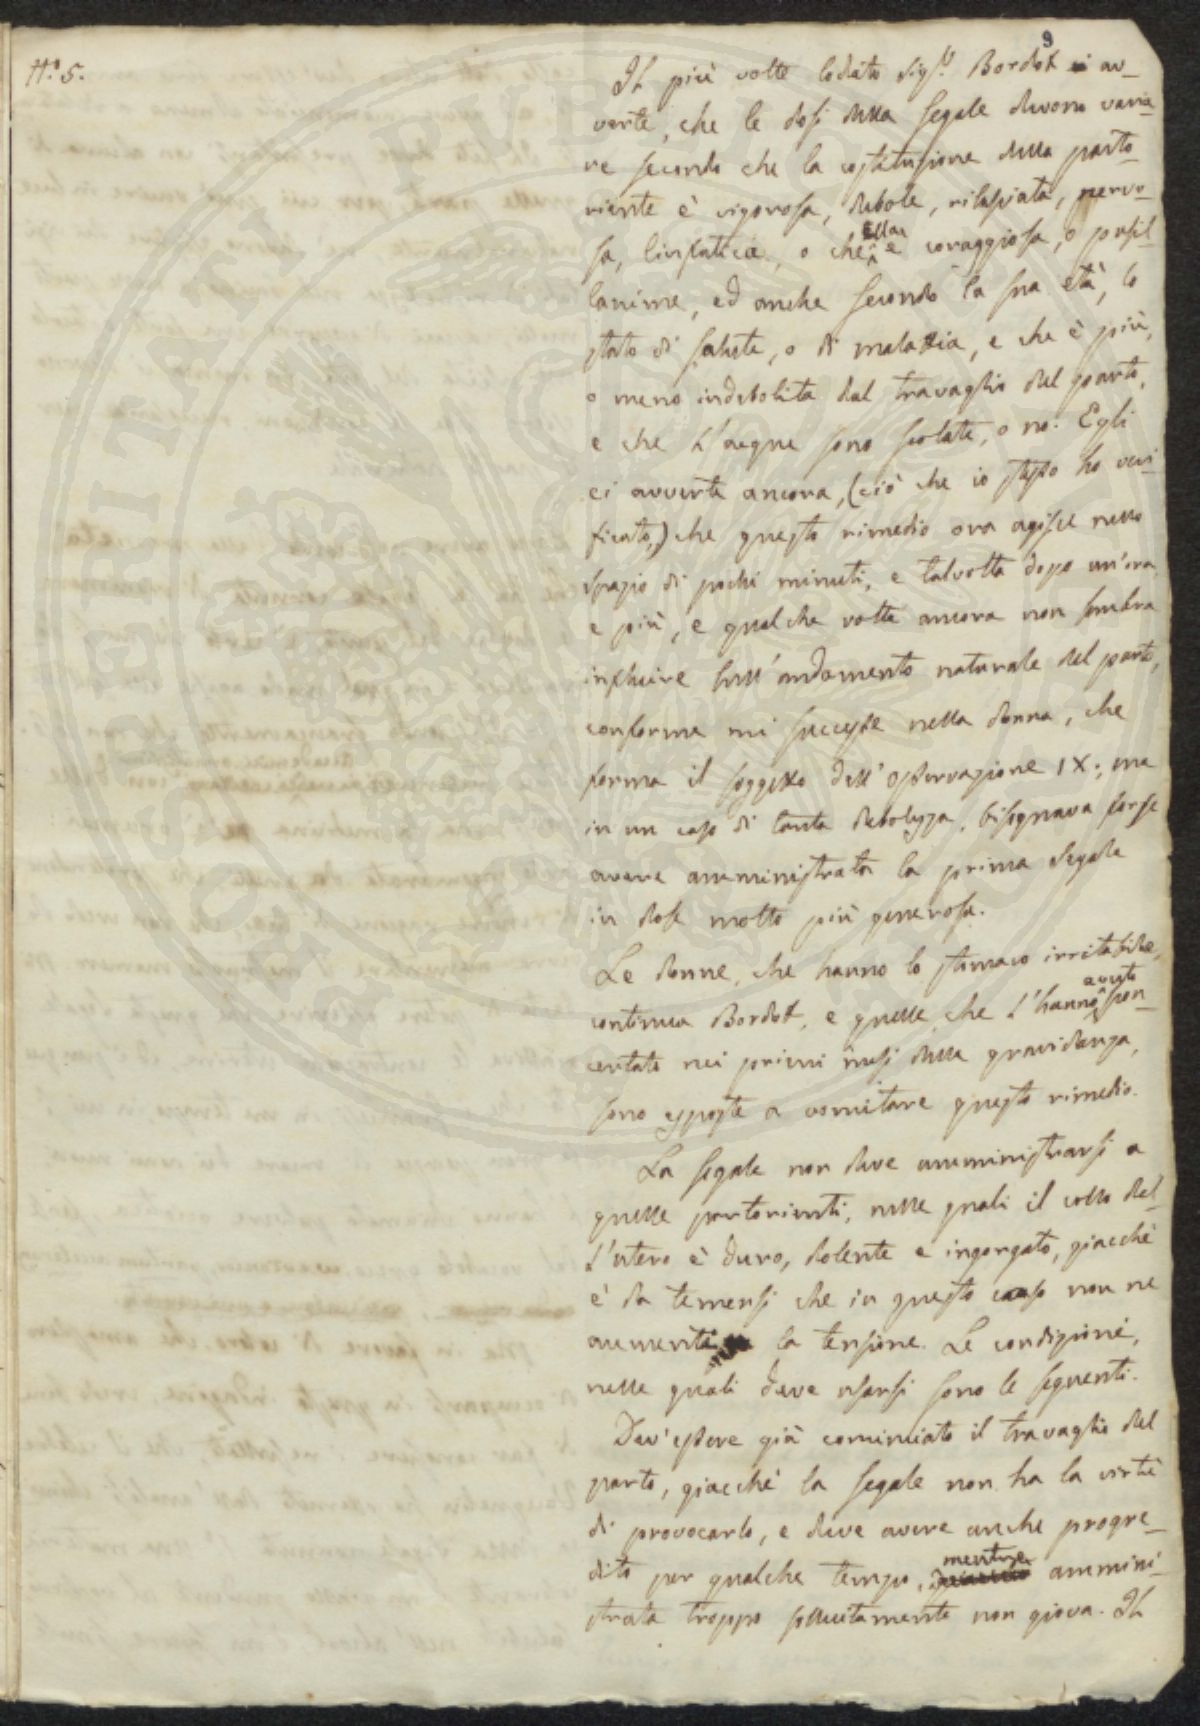 9
N.° 5.
Il più volte lodato Sig.r Bordot ci av_
verte, che le dosi della segale devono varia_
re secondo che la costituzione della parto_
riente è vigorosa, debole, rilasciata, nervo_
sa, linfatica, o che ella è coraggiosa, o pusil_
lanime, ed anche secondo la sua età, lo
stato di salute, o di malattia, e che è più,
o meno indebolita dal travaglio del parto,
e che l'acque sono scolate, o no. Egli
ci avverte ancora, (ciò che io stesso ho veri_
ficato,) che questo rimedio ora agisce nello
spazio di pochi minuti, e talvolta dopo un'ora
e più, e qualche volta ancora non sembra
influire sull'andamento naturale del parto,
conforme mi successe nella donna, che
forma il soggetto dell'osservazione IX.; ma
in un caso di tanta debolezza, bisognava forse
avere amministrata la prima segale
in dose molto più generosa.
Le donne, che hanno lo stomaco irritabile,
continua Bordot, e quelle che l'hanno avuto scon_
certato nei primi mesi della gravidanza,
sono esposte a vomitare questo rimedio.
La segale non deve amministrarsi a
quelle partorienti, nelle quali il collo del_
l'utero è duro, dolente e ingorgato, giacchè
è da temersi che in questo caso non ne
aumenti la tensione. Le condizioni,
nelle quali deve usarsi sono le seguenti.
Dev'essere già cominciato il travaglio del
parto, giacchè la segale non ha la virtù
di provocarlo, e deve avere anche progre_
dito per qualche tempo, mentre ammini_
strata troppo sollecitamente non giova. Il
PROSPERITATI PUBLICAE AUGENDAE